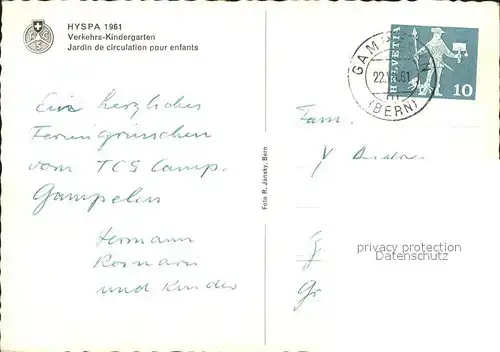 HYSPA 1961
Verkehrs-Kindergarten
Jardin de circulation pour enfants
HELVETIA
10
22.VII.61
(BERN)
Ein herzliches
Feriengrüsschen
vom TCS Camp.
Gampelen
Hermann
und Kinder
Foto R. Jansky, Bern
Fam.
privacy protection
Datenschutz